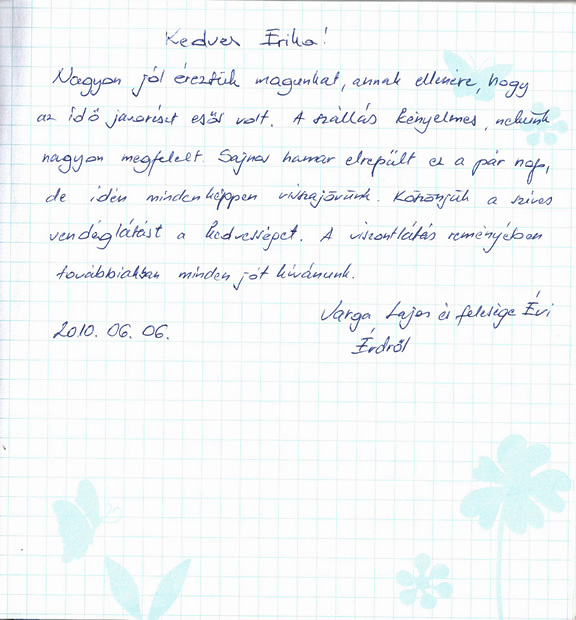 Kedves Erika!
Nagyon jól éreztük magunkat, annak ellenére, hogy
az idő javarészt esős volt. A szállás kényelmes, nekünk
nagyon megfelelt. Sajnos hamar elrepült ez a pár nap,
de idén mindenképpen visszajövünk. Köszönjük a szíves
vendéglátást a kedvességet. A viszontlátás reményében
továbbiakban minden jót kívánunk.
Varga Lajos és felesége Évi
2010. 06. 06.
Érdről